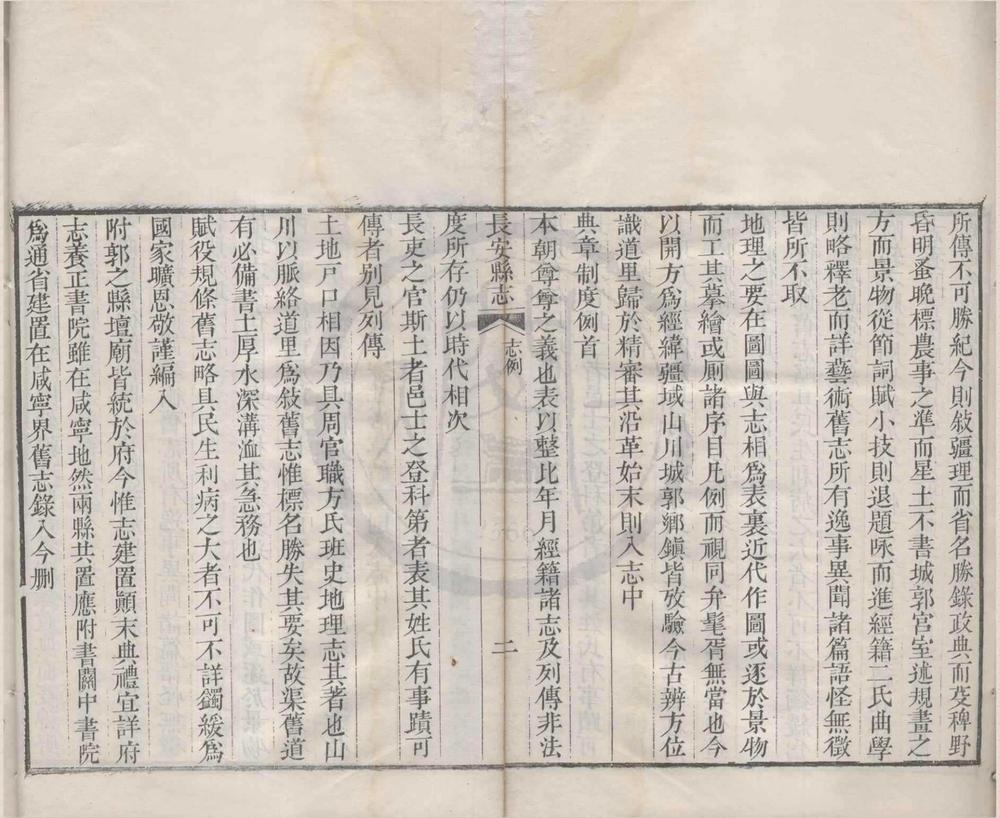 所傳不可勝紀今則敍疆理而省名勝錄政典而芟稗野
昏明蚤晚標農事之準而星土不書城郭宮室述規畫之
方而景物從節詞賦小技則退題咏而進經籍二氏曲學
則略釋老而詳藝術舊志所有逸事異聞諸篇語怪無徵
皆所不取
地理之要在圖圖與志相爲表裏近代作圖或逐於景物
而工其摹繪或厠諸序目凡例而視同弁髦胥無當也今
以開方爲經緯疆域山川城郭鄉鎮皆攷驗今古辨方位
識道里歸於精審其沿革始末則入志中
典章制度例首
本朝尊尊之義也表以整比年月經籍諸志及列傳非法
長安縣志
志例
二
度所存仍以時代相次
長吏之官斯土者邑士之登科第者表其姓氏有事蹟可
傳者別見列傳
土地戸口相因乃具周官職方氏班史地理志其著也山
川以脈絡道里爲敍舊志惟標名勝失其要矣故渠舊道
有必備書土厚水深溝洫其急務也
賦役規條舊志略具民生利病之大者不可不詳蠲緩爲
國家曠恩敬謹編入
附郭之縣壇廟皆統於府今惟志建置顚末典禮宜詳府
志養正書院雖在咸寧地然兩縣共置應附書關中書院
爲通省建置在咸寧界舊志錄入今刪